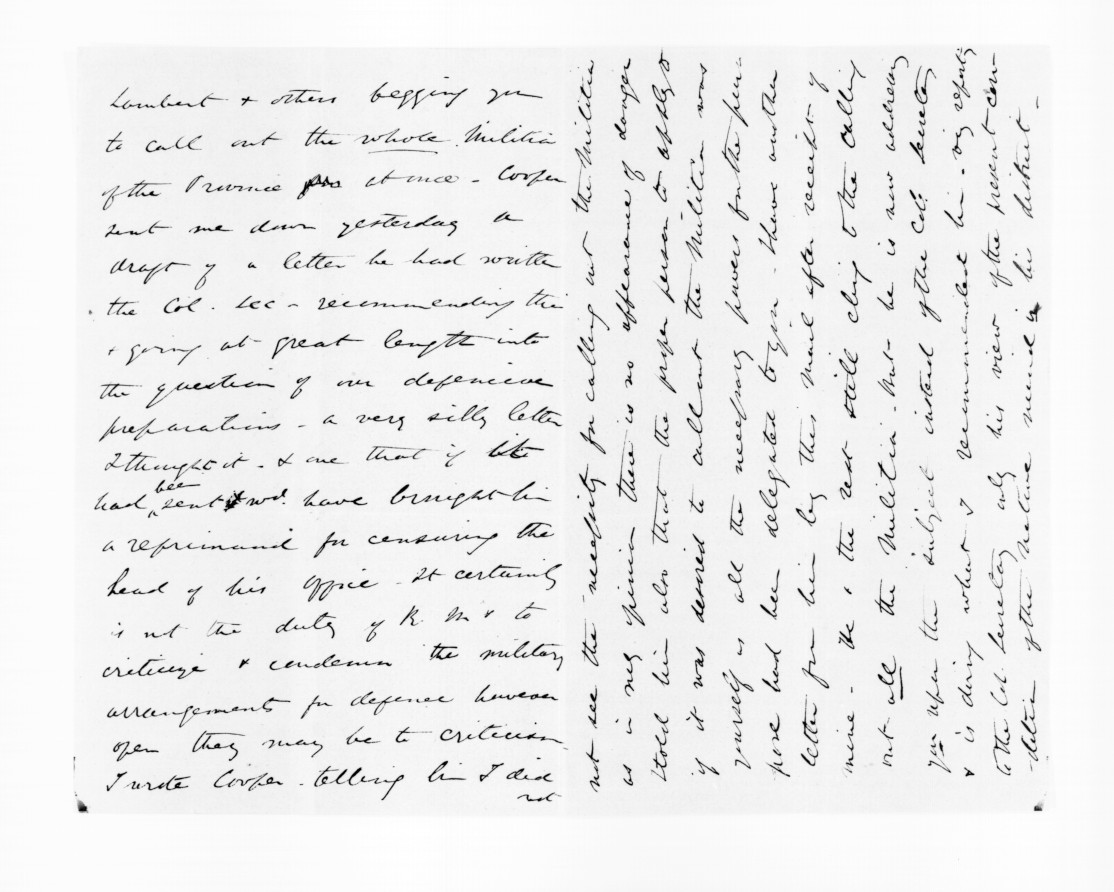 Lambert & others begging you
to call out the whole Militia
of the Province at once - Cooper
sent me down yesterday a
draft of a letter he had written
the Col. Sec - recommending this
& going at great length into
the question of our defensive
preparations - a very silly letter
I thought it - & one that if it
had been sent wd. have brought him
a reprimand for censuring the
head of his office - It certainly
is not the duty of R. Ms to
criticize & condemn the military
arrangements for defence however
open they may be to criticism
I wrote Cooper - telling him I did
not
not see the necessity for calling out the Militia
as in my opinion there is no appearance of danger
I told him also that the proper person to apply to
if it was desired to call out the Militia was
yourself as all the necessary powers for the pur
pose had been delegated to you - there another
letter from him by this mail after receipt of
mine - He & the rest still cling to the calling
out all the Militia - but he is now addressing
you upon the subject instead of the Col. Secretary
& is doing what I recommended he - viz report
to the Col. Secretary only his view of the present con-
dition of the native mind in his district -